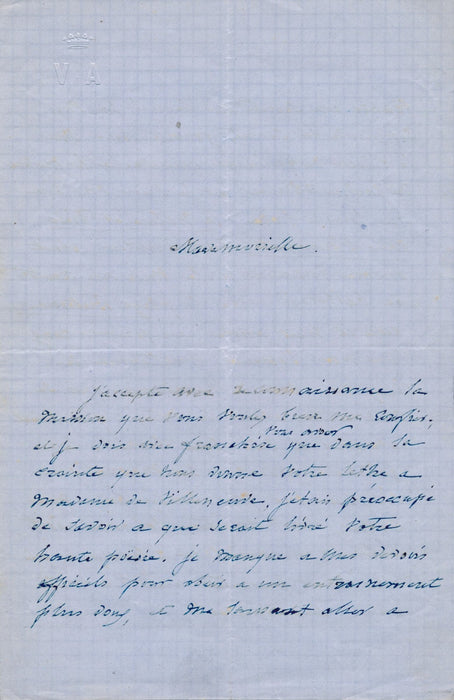 V A
Mademoiselle.
J'accepte avec reconnaissance la
mission que vous voulez bien me confier,
et je dois vous avouer franchise que dans la
crainte que nous donne votre lettre a
Madame de Villeneuve, j'etais préoccupé
de savoir a que serait livré votre
haute poésie. je manque a mes devoirs
officiels pour obeir a un entrainement
plus doux, et me laissant aller a